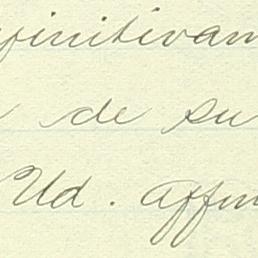 finitivam
de su
Ud. affm